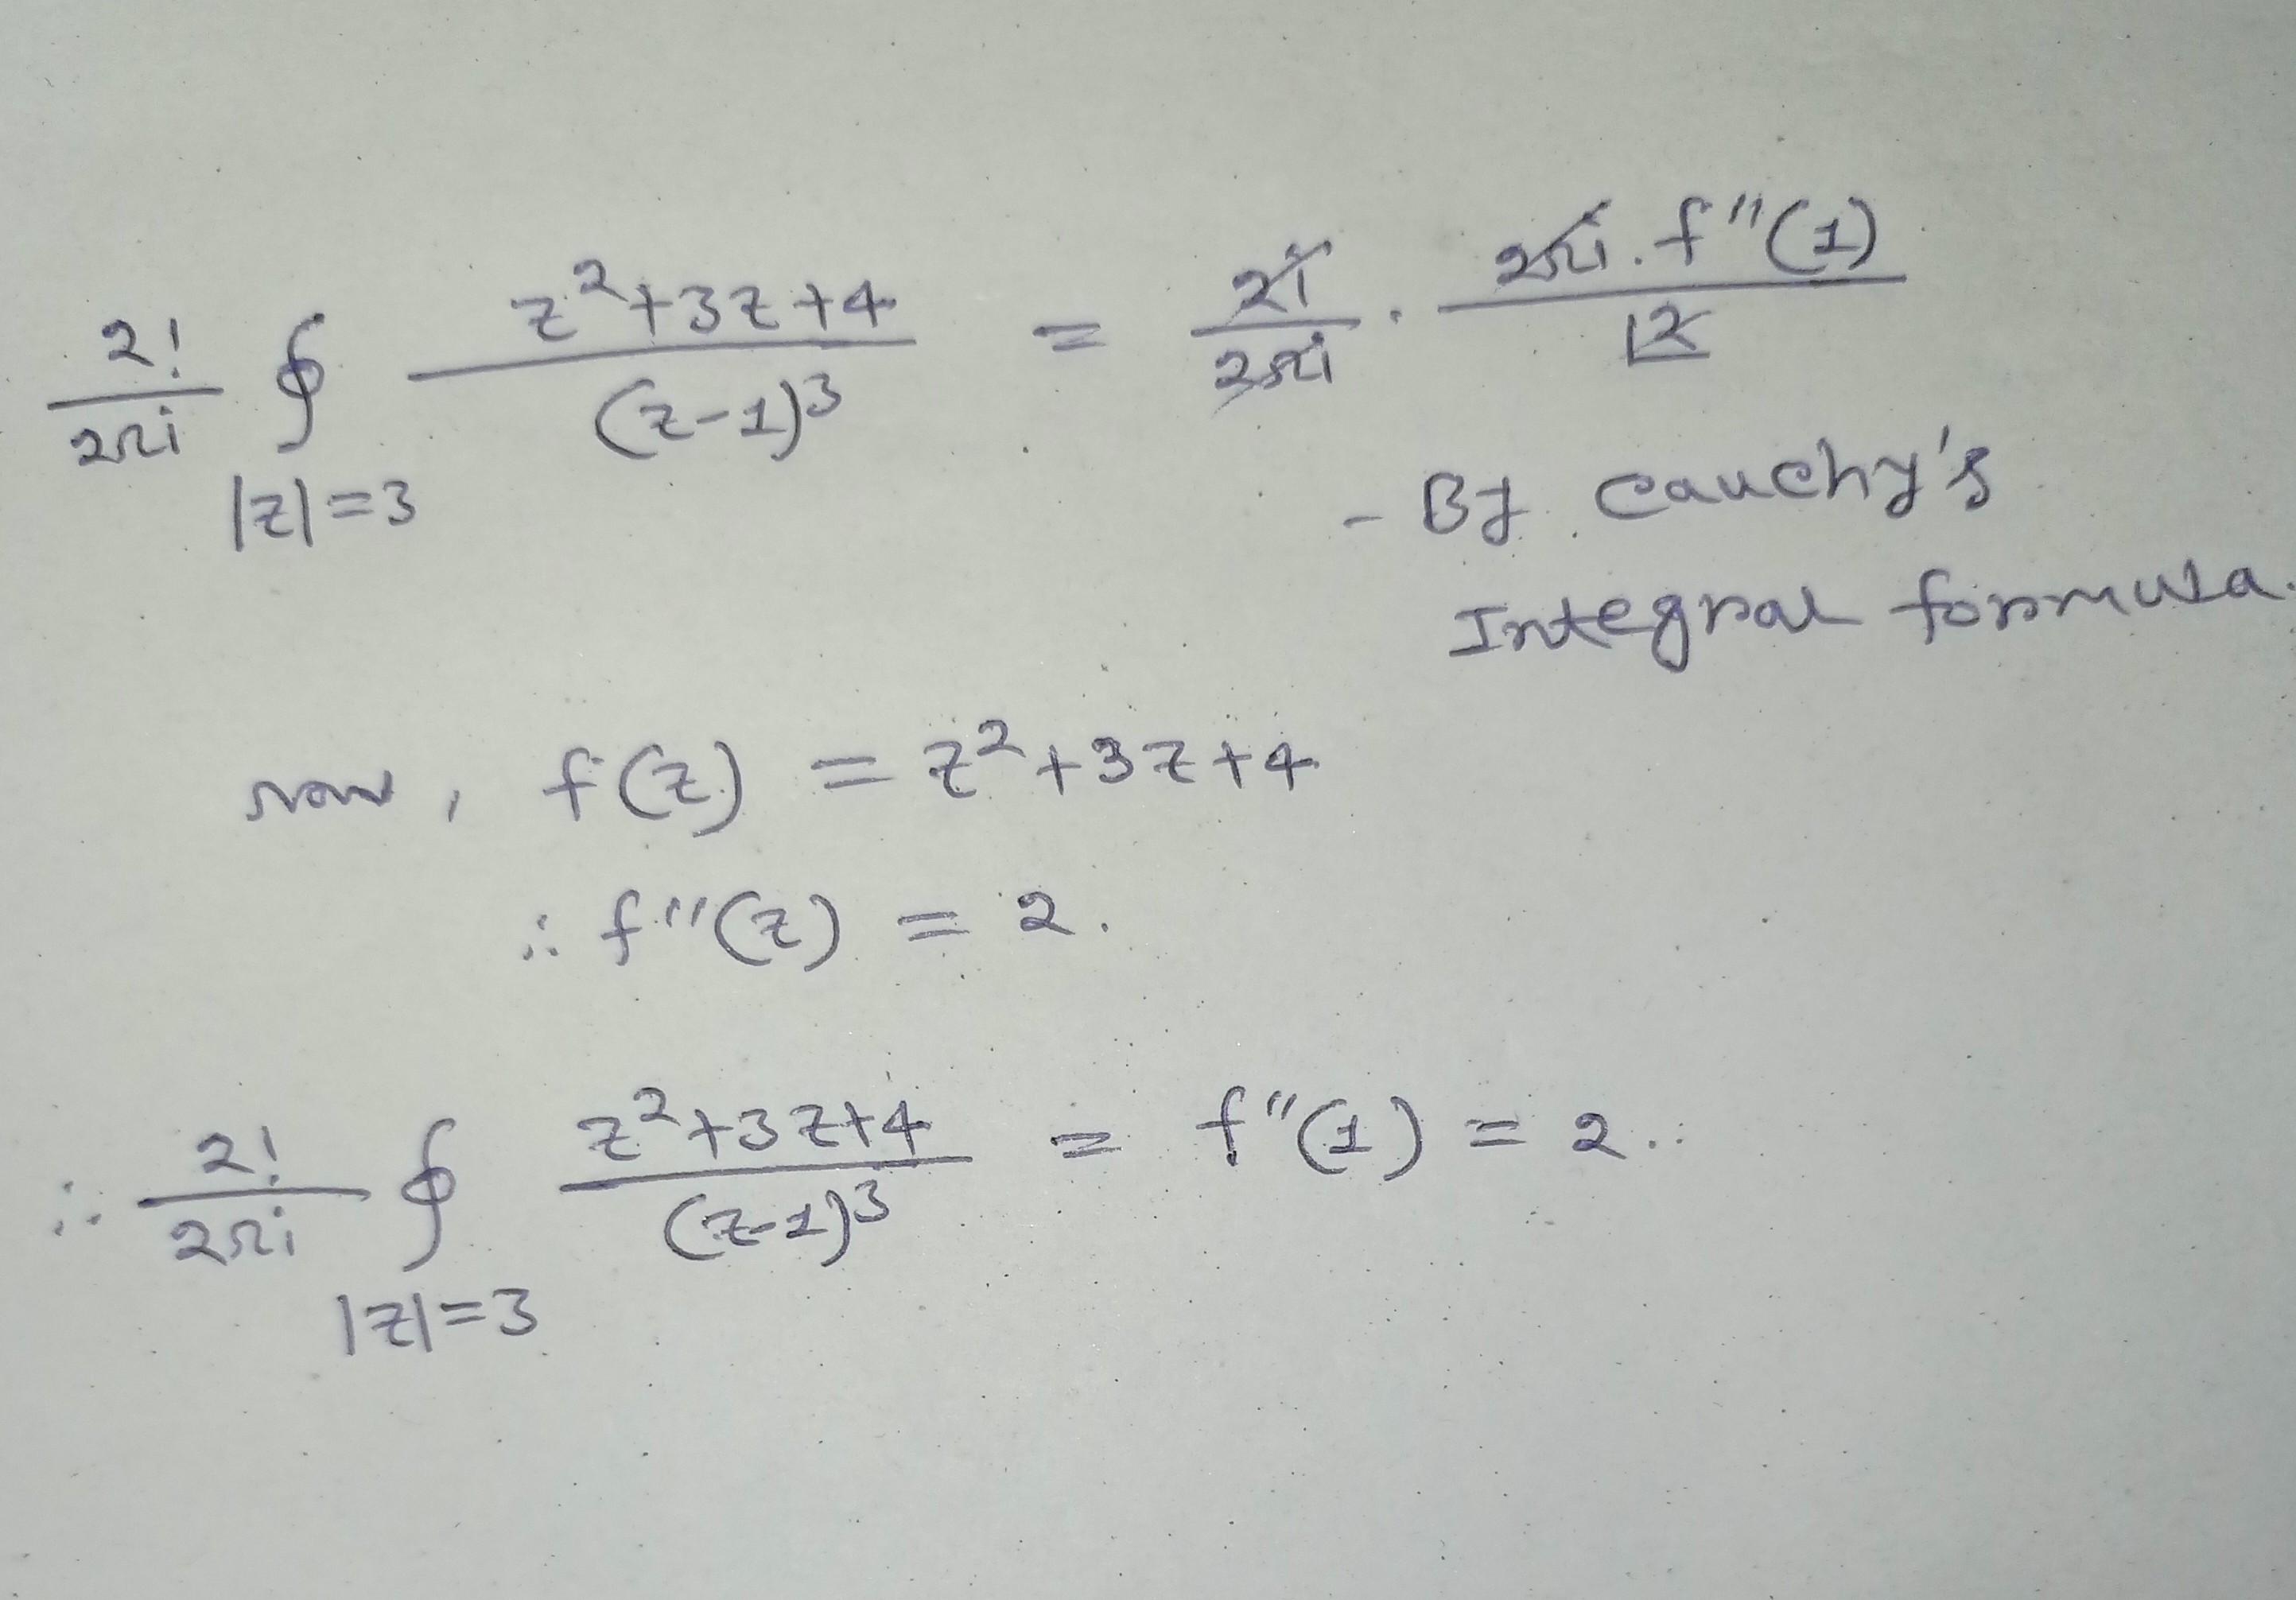 2!/2πi ∮_{|z|=3} (z²+3z+4)/(z-1)³ = 2!/2πi · 2πi.f''(1)/|2
- By Cauchy's
Integral formula.
now, f(z) = z²+3z+4
∴ f''(z) = 2.
∴ 2!/2πi ∮_{|z|=3} (z²+3z+4)/(z-1)³ = f''(1) = 2.